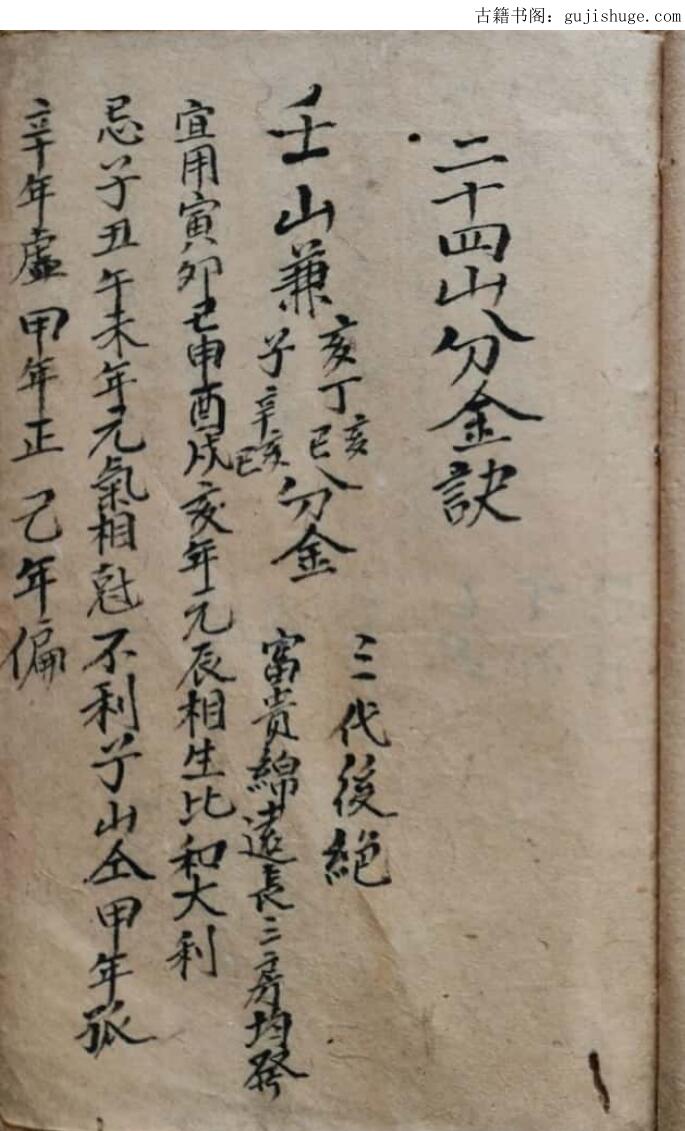 古籍书阁：gujishuge.com
二十四山分金訣
壬山兼
亥丁亥巳
子辛亥巳
分金
三代後絶
富貴綿遠長三房均發
宜用寅卯巳申酉戌亥年元辰相生比和大利
忌子丑午未年元氣相尅不利子山仝甲年孤
辛年虛甲年正己年偏